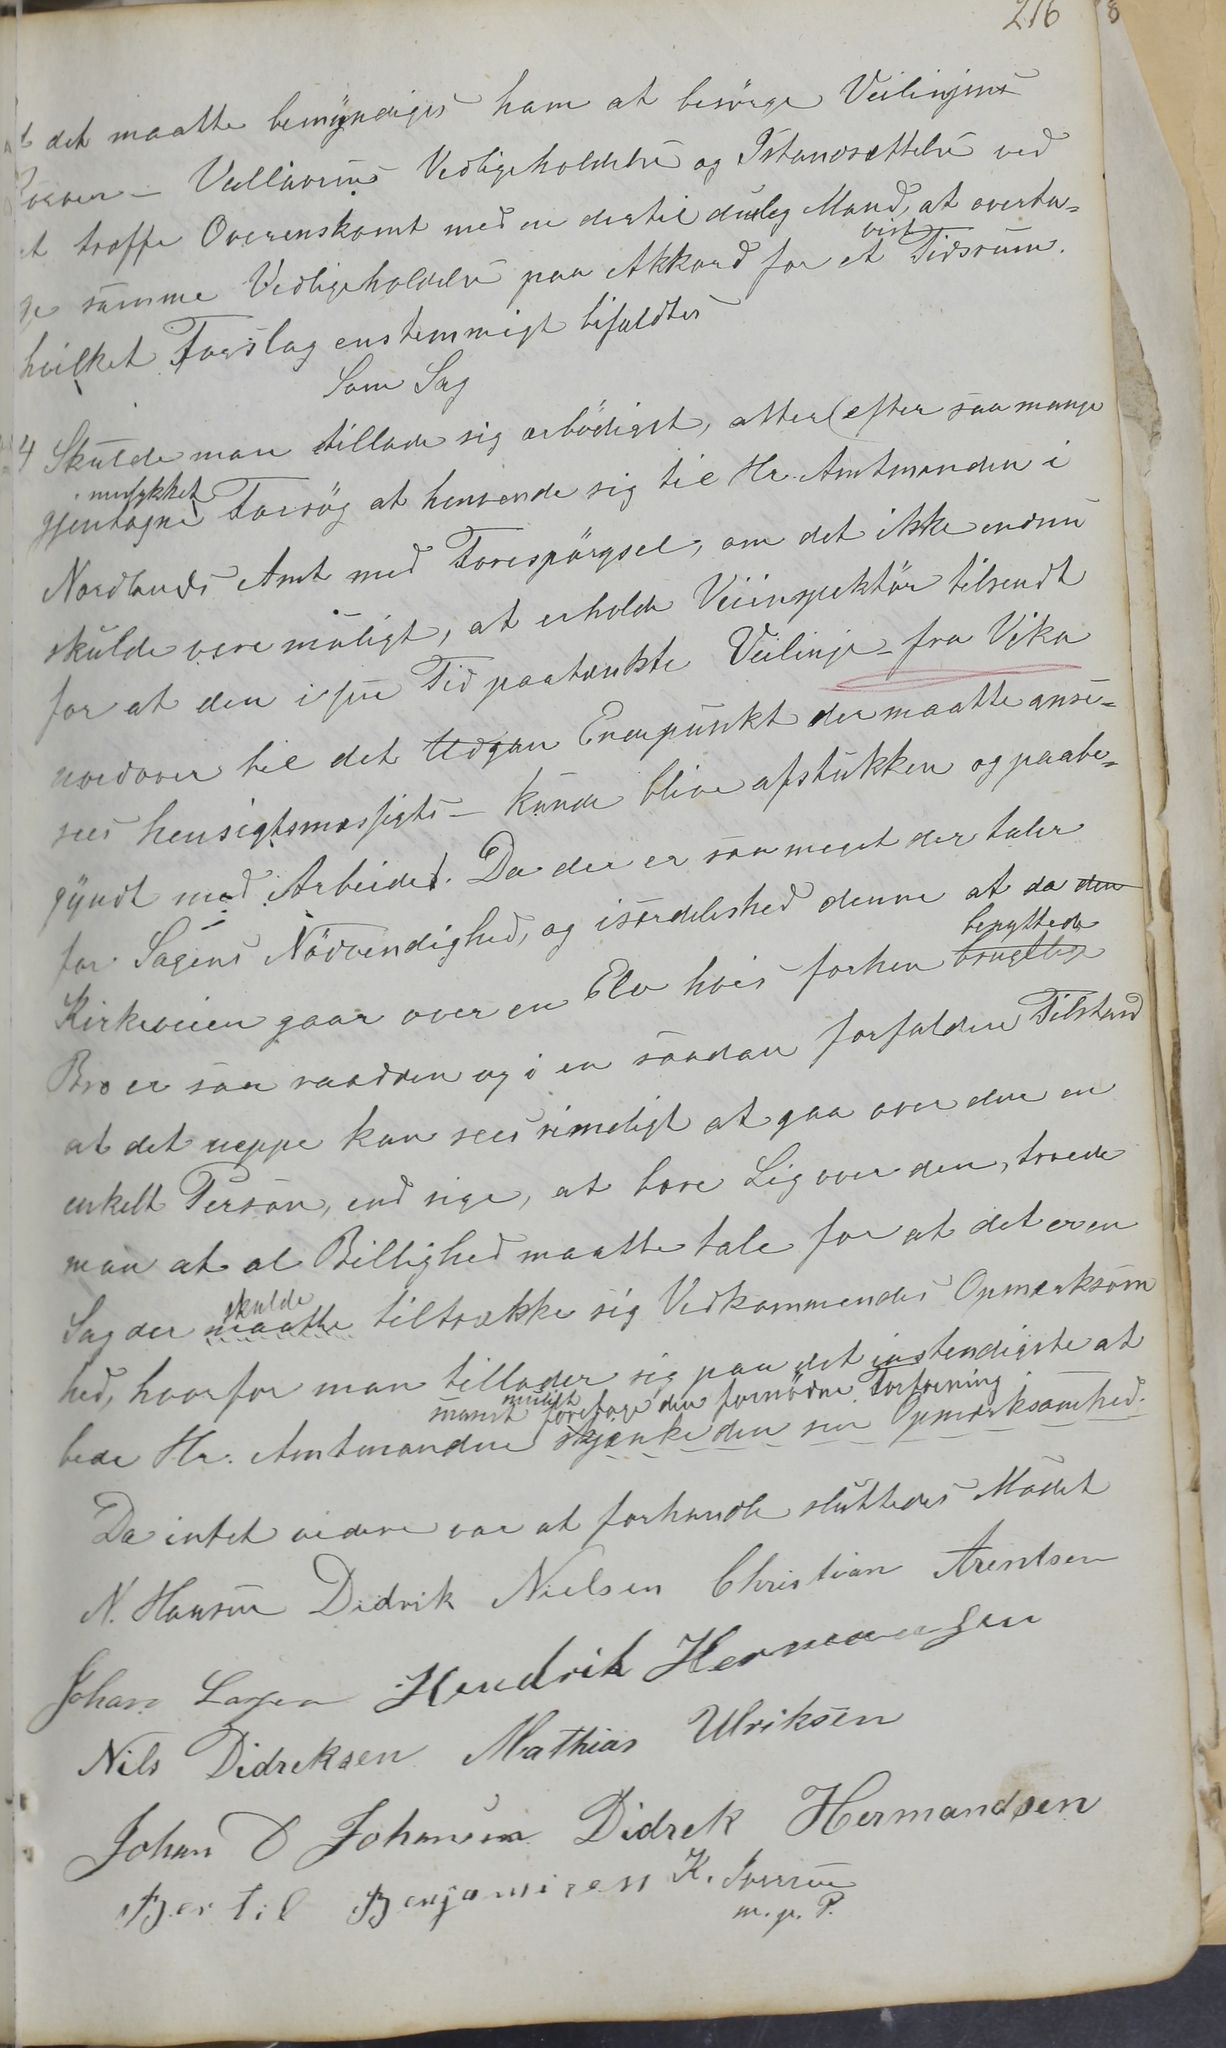 216
8
det maatte bemyndiges ham at besörge Veilinjens
Vedligeholdelse og Istandsættelse ved
at træffe Overenskomst med en dertil duelig Mand, at overta-
vist
ge samme Vedligeholdelse paa Akkord for et Tidsrum.
hvilket Forslag enstemmigt bifaldtes
Som Sag
4 Skulde man tillade sig ærbödigst, atter (efter saa mange
mislykket
gjentagne Forsög at henvende sig til Hr. Amtmanden i
Nordlands Amt med Forespörgsel, om det ikke endnu
skulde være muligt, at erholde Veiinspektör tilsendt
for at den i sin Tid paatænkte Veilinje - fra Vika
nordover til det Udgan Endepunkt der maatte ansee-
sees hensigtsmæssigts - kunde blive afstukken og paabe-
gyndt med Arbeidet. Da der er saa meget der taler
for Sagens Nödvendighed, og isærdeleshed denne at da den
benyttede
Kirkeveien gaar over en Elv hvis forhen brugelige
Bro er saa raadden og i en saadan forfalden Tilstand
at det neppe kan sees rimeligt at gaa over den en
enkelt Person, end sige, at bære Lig over den, troede
man at al Billighed maatte tale for at det er en
skulde
Sag der maatte tiltrække sig Vedkommendes Opmærksom
hed, hvorfor man tillader sig paa det instendigste at
muligt
snarest foretage den fornödne Forföining
bede Hr. Amtmanden skjænke den sin Opmærksomhed.
Da intet videre var at forhandle sluttedes Mödet
N. Hansen Didrik Nielsen Christian Arentsen
Johan Larsen Hendrik Hermansen
Nils Didreksen Mathias Ulriksen
Johan D Johansen Didrek Hermandsen
Bertil Benjaminsen K. Iversen
m. p. P.